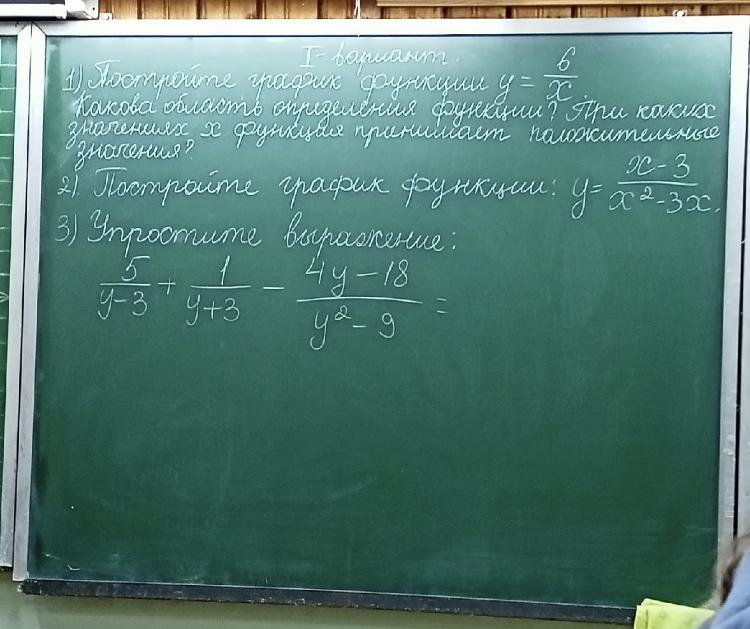 I-вариант.
1) Постройте график функции y = 6/x.
Какова область определения функции? При каких
значениях x функция принимает положительные
значения?
2) Постройте график функции: y = x-3/x²-3x.
3) Упростите выражение:
5/y-3 + 1/y+3 - 4y-18/y²-9 =